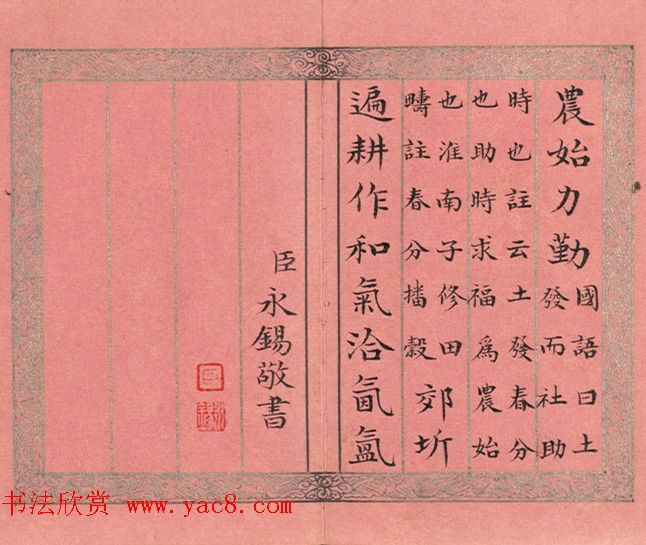 農始力勤國語曰土
發而社助
時也註云土發春分
也助時求福爲農始
也淮南子修田
疇註春分播穀郊圻
遍耕作和氣洽氤氳
臣永錫敬書
书法欣赏 www.yac8.com